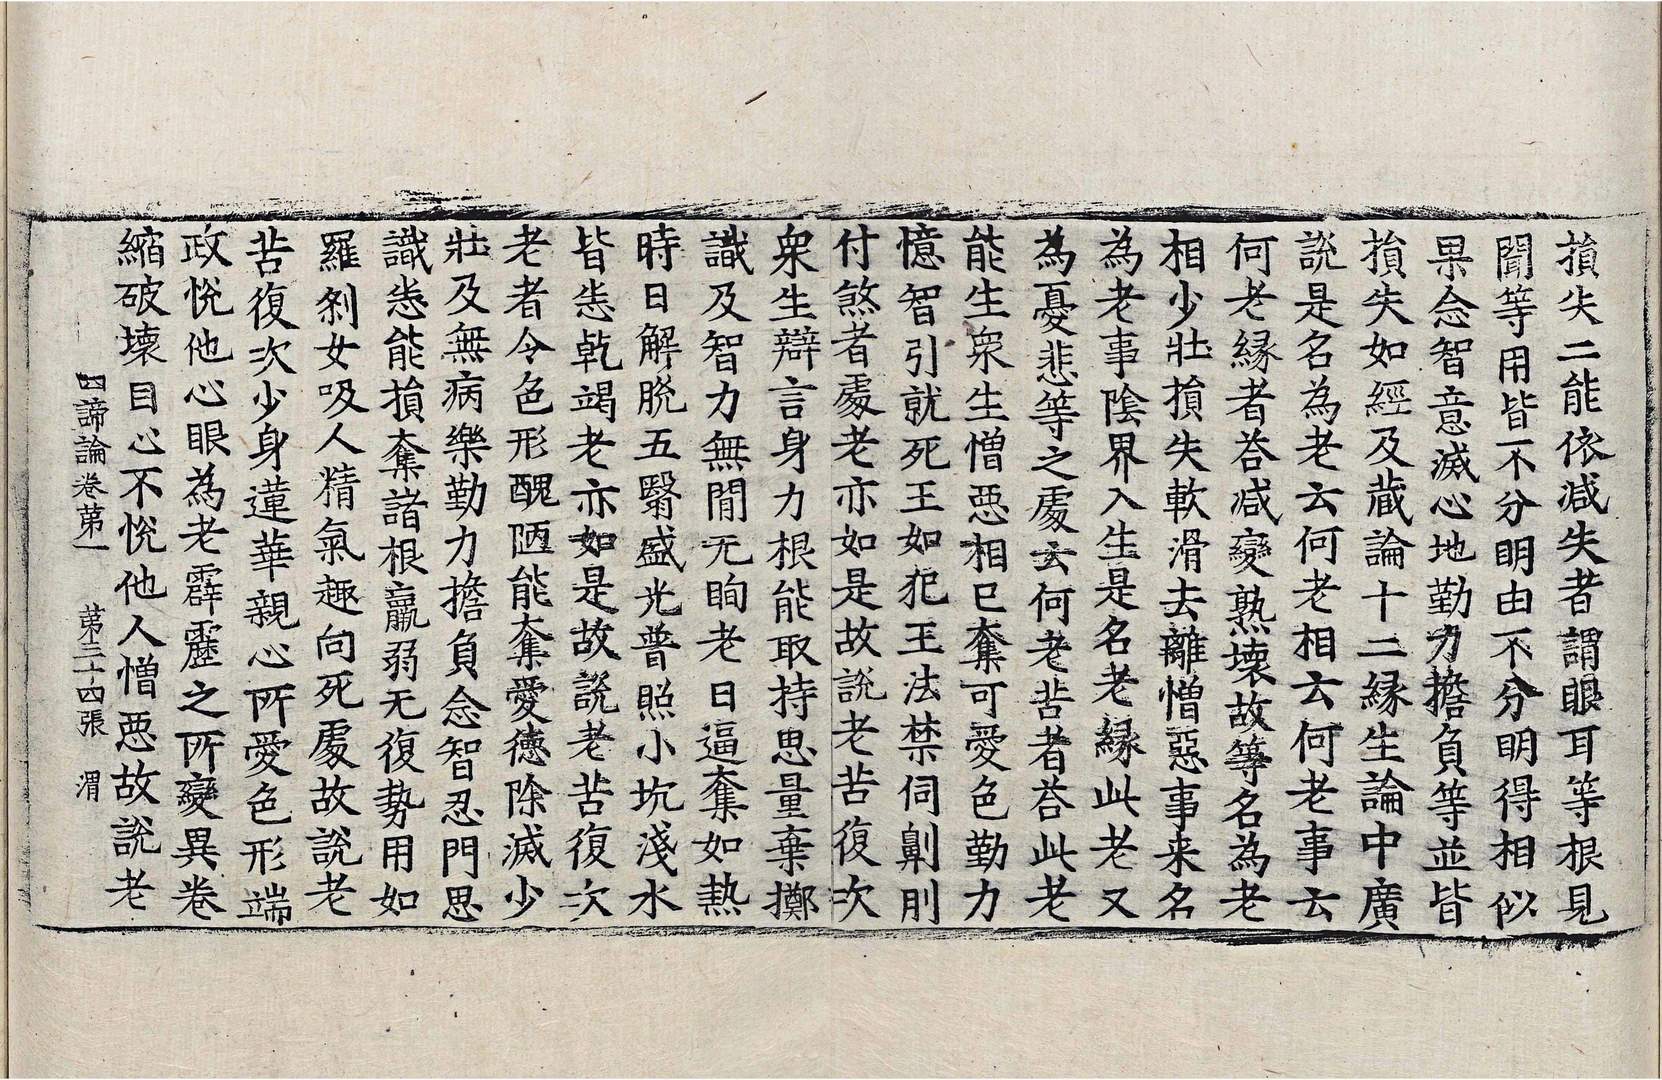 損失二能依減失者謂眼耳等根見
聞等用皆不分明由不分明得相似
果念智意滅心地勤力擔負等並皆
損失如經及蔵論十二縁生論中廣
說是名為老云何老相云何老事云
何老縁者荅减變熟壊故等名為老
相少壯損失軟滑去離憎惡事来名
為老事陰界入生是名老縁此老又
為憂悲等之處去何老苦者荅此老
能生衆生憎惡相已奪可愛色勤力
憶智引就死王如犯王法禁伺劓刖
付煞者處老亦如是故說老苦復次
衆生辯言身力根能取持思量棄擲
識及智力無間无眴老日逼奪如熱
時日解脫五翳盛光普照小坑淺水
皆悉乾竭老亦如是故說老苦復次
老者令色形醜陋能奪愛徳除滅少
壯及無病樂勤力擔負念智忍門思
識悉能損奪諸根羸弱无復勢用如
羅剎女吸人精氣趣向死處故說老
苦復次少身蓮華親心所愛色形端
政悅他心眼為老霹靂之所變異卷
縮破壊目心不悅他人憎惡故說老
四諦論卷第一 第三十四張 渭